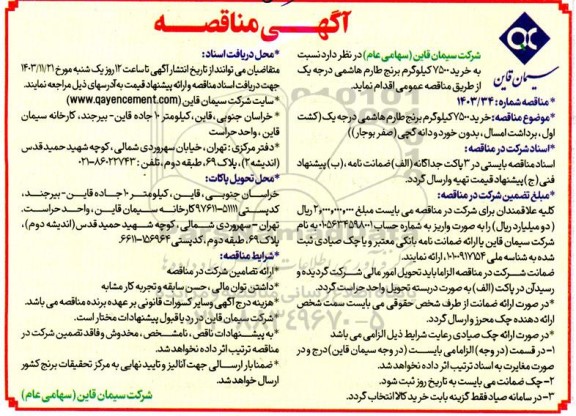 آگهی مناقصه
سیمان قاین
شرکت سیمان قاین (سهامی عام) در نظر دارد نسبت
به خرید ۷۵۰۰ کیلوگرم برنج طارم هاشمی درجه یک
از طریق مناقصه عمومی اقدام نماید.
*مناقصه شماره: ۱۴۰۳/۳۴
*موضوع مناقصه: خرید ۷۵۰۰ کیلوگرم برنج طارم هاشمی درجه یک (کشت
اول، برداشت امسال، بدون خرد و دانه گچی (صفر بوجار))
*اسناد شرکت در مناقصه:
اسناد مناقصه بایستی در ۳ پاکت جداگانه (الف) ضمانت نامه، (ب) پیشنهاد
فنی (ج) پیشنهاد قیمت تهیه و ارسال گردد.
*مبلغ تضمین شرکت در مناقصه:
کلیه علاقمندان برای شرکت در مناقصه می بایست مبلغ ۲,۰۰۰,۰۰۰,۰۰۰ ریال
(دو میلیارد ریال) را به صورت واریز به شماره حساب به نام
شرکت سیمان قاین یا ارائه ضمانت نامه بانکی معتبر و یا چک صیادی ثبت
شده به شناسه ملی ارائه نمایند.
ضمانت شرکت در مناقصه الزاما باید تحویل امور مالی شرکت گردیده و
رسید آن در پاکت (الف) به صورت دربسته تحویل واحد حراست گردد.
*در صورت ارائه ضمانت از طرف شخص حقوقی می بایست سمت شخص
ارائه دهنده چک محرز و ارسال گردد.
*در صورت ارائه چک صیادی رعایت شرایط ذیل الزامی می باشد
۱- در قسمت (در وجه) الزاما می بایست (در وجه سیمان قاین) درج و در
صورت مغایرت به اسناد ترتیب اثر داده نخواهد شد.
۲- چک ضمانت می بایست به تاریخ روز ثبت شود.
۳- در سامانه صیاد فقط گزینه بابت خرید کالا انتخاب گردد.
*محل دریافت اسناد:
متقاضیان می توانند از تاریخ انتشار آگهی تا ساعت ۱۲ روز یک شنبه مورخ ۱۴۰۳/۱۱/۲۱
جهت دریافت اسناد مناقصه و ارائه پیشنهاد قیمت به آدرسهای ذیل مراجعه نمایند.
*سایت شرکت سیمان قاین (www.qayencement.com)
*خراسان جنوبی، قاین، کیلومتر ۱۰ جاده قاین- بیرجند، کارخانه سیمان
قاین، واحد حراست
*دفتر مرکزی: تهران، خیابان سهروردی شمالی، کوچه شهید حمید قدس
(اندیشه ۲)، پلاک ۶۹، طبقه دوم، تلفن: ۸۶۰۲۲۷۴۳-۰۲۱
*محل تحویل پاکات:
خراسان جنوبی، قاین، کیلومتر ۱۰ جاده قاین- بیرجند،
کدپستی ۵۱۱۱۱-۹۷۶۱۱ کارخانه سیمان قاین، واحد حراست.
تهران- سهروردی شمالی کوچه شهید حمید قدس (اندیشه دوم)،
پلاک ۶۹، طبقه دوم، کدپستی
*شرایط مناقصه:
*ارائه تضامین شرکت در مناقصه
*داشتن توان مالی، حسن سابقه و تجربه کار مشابه
*هزینه درج آگهی و سایر کسورات قانونی بر عهده برنده مناقصه می باشد.
*شرکت سیمان قاین در رد یا قبول پیشنهادات مختار است.
*به پیشنهادات ناقص، نامشخص، مخدوش و فاقد تضمین شرکت در
مناقصه ترتیب اثر داده نخواهد شد.
*ضمنا بار ارسالی جهت آنالیز و تایید نهایی به مرکز تحقیقات برنج کشور
ارسال خواهد شد.
شرکت سیمان قاین (سهامی عام)